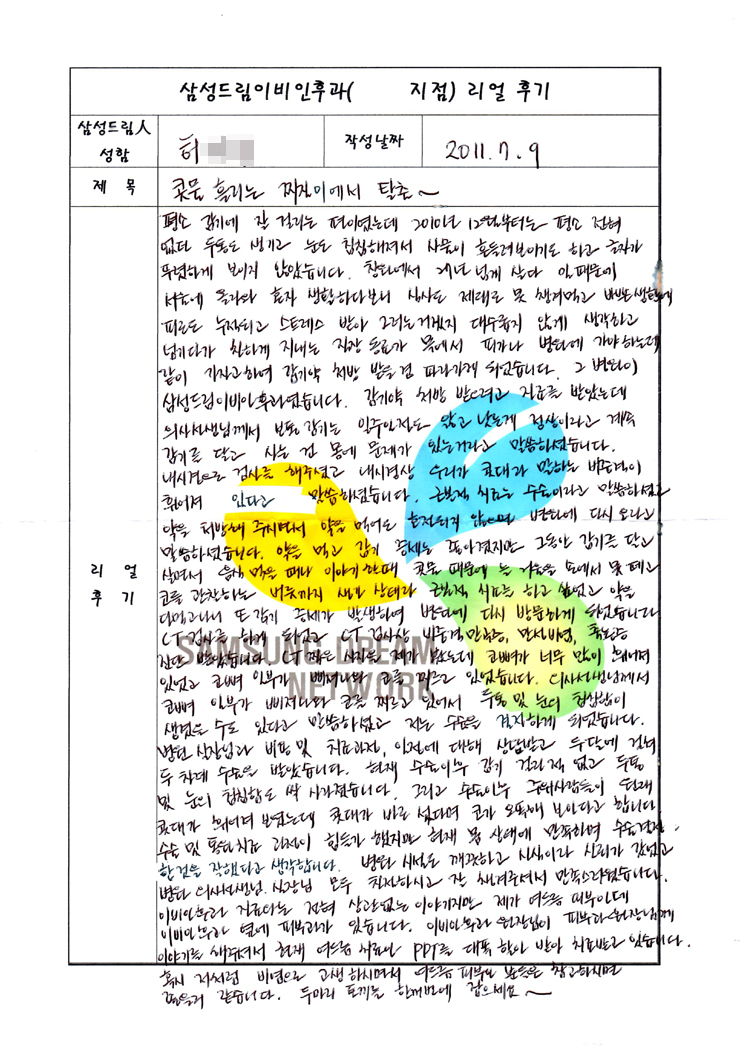 삼성드림이비인후과( 지점) 리얼 후기
삼성드림人 성함
허
작성날짜
2011. 7. 9
제 목
콧물 흘리는 찌질이에서 탈출~
리 얼
후 기
평소 감기에 잘 걸리는 편이였는데 2010년 12월부터는 평소 전혀
없던 두통도 생기고 눈도 침침해져서 사물이 흔들려보이기도 하고 글자가
뚜렷하게 보이지 않았습니다. 창원에서 21년 넘게 살다 일 때문에
서울에 올라와 혼자 생활하다보니 식사도 제때로 못 챙겨먹고 바쁜 생활에
피로도 누적되고 스트레스 받아 그러는거겠지 대수롭지 않게 생각하고
넘기다가 친하게 지내는 직장 동료가 목에서 피가나 병원에 가야하는데
같이 가자고하여 감기약 처방 받을 겸 따라가게 되었습니다. 그 병원이
삼성드림이비인후과였습니다. 감기약 처방 받으려고 진료를 받았는데
의사선생님께서 보통 감기는 일주일정도 앓고 낫는게 정상이라고 계속
감기를 달고 사는 건 몸에 문제가 있는거라고 말씀하셨습니다.
내시경으로 검사를 해주셨고 내시경상 우리가 콧대라 말하는 비중격이
휘어져 있다고 말씀하셨습니다. 근본적 치료는 수술이라고 말씀하셨고
약을 처방해 주시면서 약을 먹어도 호전되지 않으면 병원에 다시 오라고
말씀하셨습니다. 약을 먹고 감기 증세는 좋아졌지만 그동안 감기를 달고
살면서 음식 먹을 때나 이야기 할 때 콧물 때문에 늘 가슴을 손에서 못 떼고
코를 관찰하는 버릇까지 생긴 상태라 근본적 치료를 하고 싶었고 약을
다먹고나니 또 감기 증세가 발생하여 병원에 다시 방문하게 되었습니다
CT 검사를 하게 되었고 CT 검사상 비중격만곡증, 만성비염, 축농증
진단 받았습니다. CT 찍은 사진을 제가 봤는데 코뼈가 너무 많이 휘어져
있었고 코뼈 일부가 삐져나와 코를 찌르고 있었습니다. 의사선생님께서
코뼈 일부가 삐져나와 코를 찌르고 있어서 두통 및 눈의 침침함이
생겼을 수도 있다고 말씀하셨고 저는 수술을 결심하게 되었습니다.
병원 실장님과 비용 및 치료과정, 일정에 대해 상담받고 두달에 걸쳐
두 차례 수술을 받았습니다. 현재 수술이후 감기 걸린적 없고 두통
및 눈의 침침함도 싹 사라졌습니다. 그리고 수술이후 주위사람들이 원래
콧대가 휘어져 보였는데 콧대가 바로 섰다며 코가 오똑해 보인다고 합니다
수술 및 통원치료 과정이 힘들기 했지만 현재 몸 상태에 만족하며 수술결정
한 것을 잘했다고 생각합니다. 병원 시설도 깨끗하고 최신식이라 신뢰가 갔었고
병원 의사선생님, 실장님 모두 친절하시고 잘 챙겨주셔서 만족스러웠습니다.
이비인후과 치료와는 전혀 상관없는 이야기지만 제가 여드름 피부인데
이비인후과 옆에 피부과가 있습니다. 이비인후과 원장님이 피부과 원장님께
이야기를 해주셔서 현재 여드름 치료인 PDT를 대폭 할인 받아 치료받고 있습니다.
혹시 저처럼 비염으로 고생하시면서 여드름 피부인 분들은 참고하시면
좋을거 같습니다. 두마리 토끼를 한꺼번에 잡으세요~
SAMSUNG DREAM
NETWORK